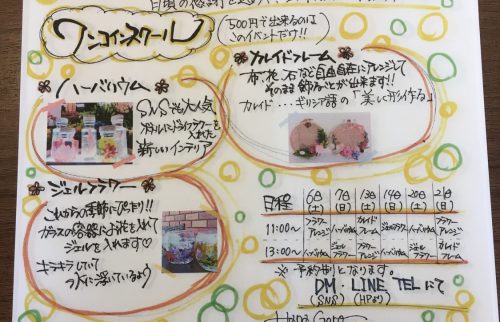 ワンコインスクール
500円で出来るのは
このイベントだけ!!
カレイドフレーム
布、花、石など自由自在にアレンジして
そのまま飾ることが出来ます!!
カレイド...ギリシア語の「美しい形作る」
ハーバリウム
SNSでも大人気
ボトルにドライフラワーを
入れた
新しいインテリア
ジェルフラワー
これからの季節にぴったり!!
ガラスの容器にお花を入れて
ジェルを入れます♡
キラキラしていて
水に浮いているよう
日程 6日(土) 7日(日) 13日(土) 14日(日) 20日(土) 21日(日)
11:00〜 フラワーアレンジ ハーバリウム カレイドフレーム ジェルフラワー ハーバリウム フラワーアレンジ
13:00〜 ハーバリウム ジェルフラワー フラワーアレンジ ハーバリウム ジェルフラワー カレイドフレーム
※予約制となります。
DM・LINE、TELにて
(SNS) (HPより)